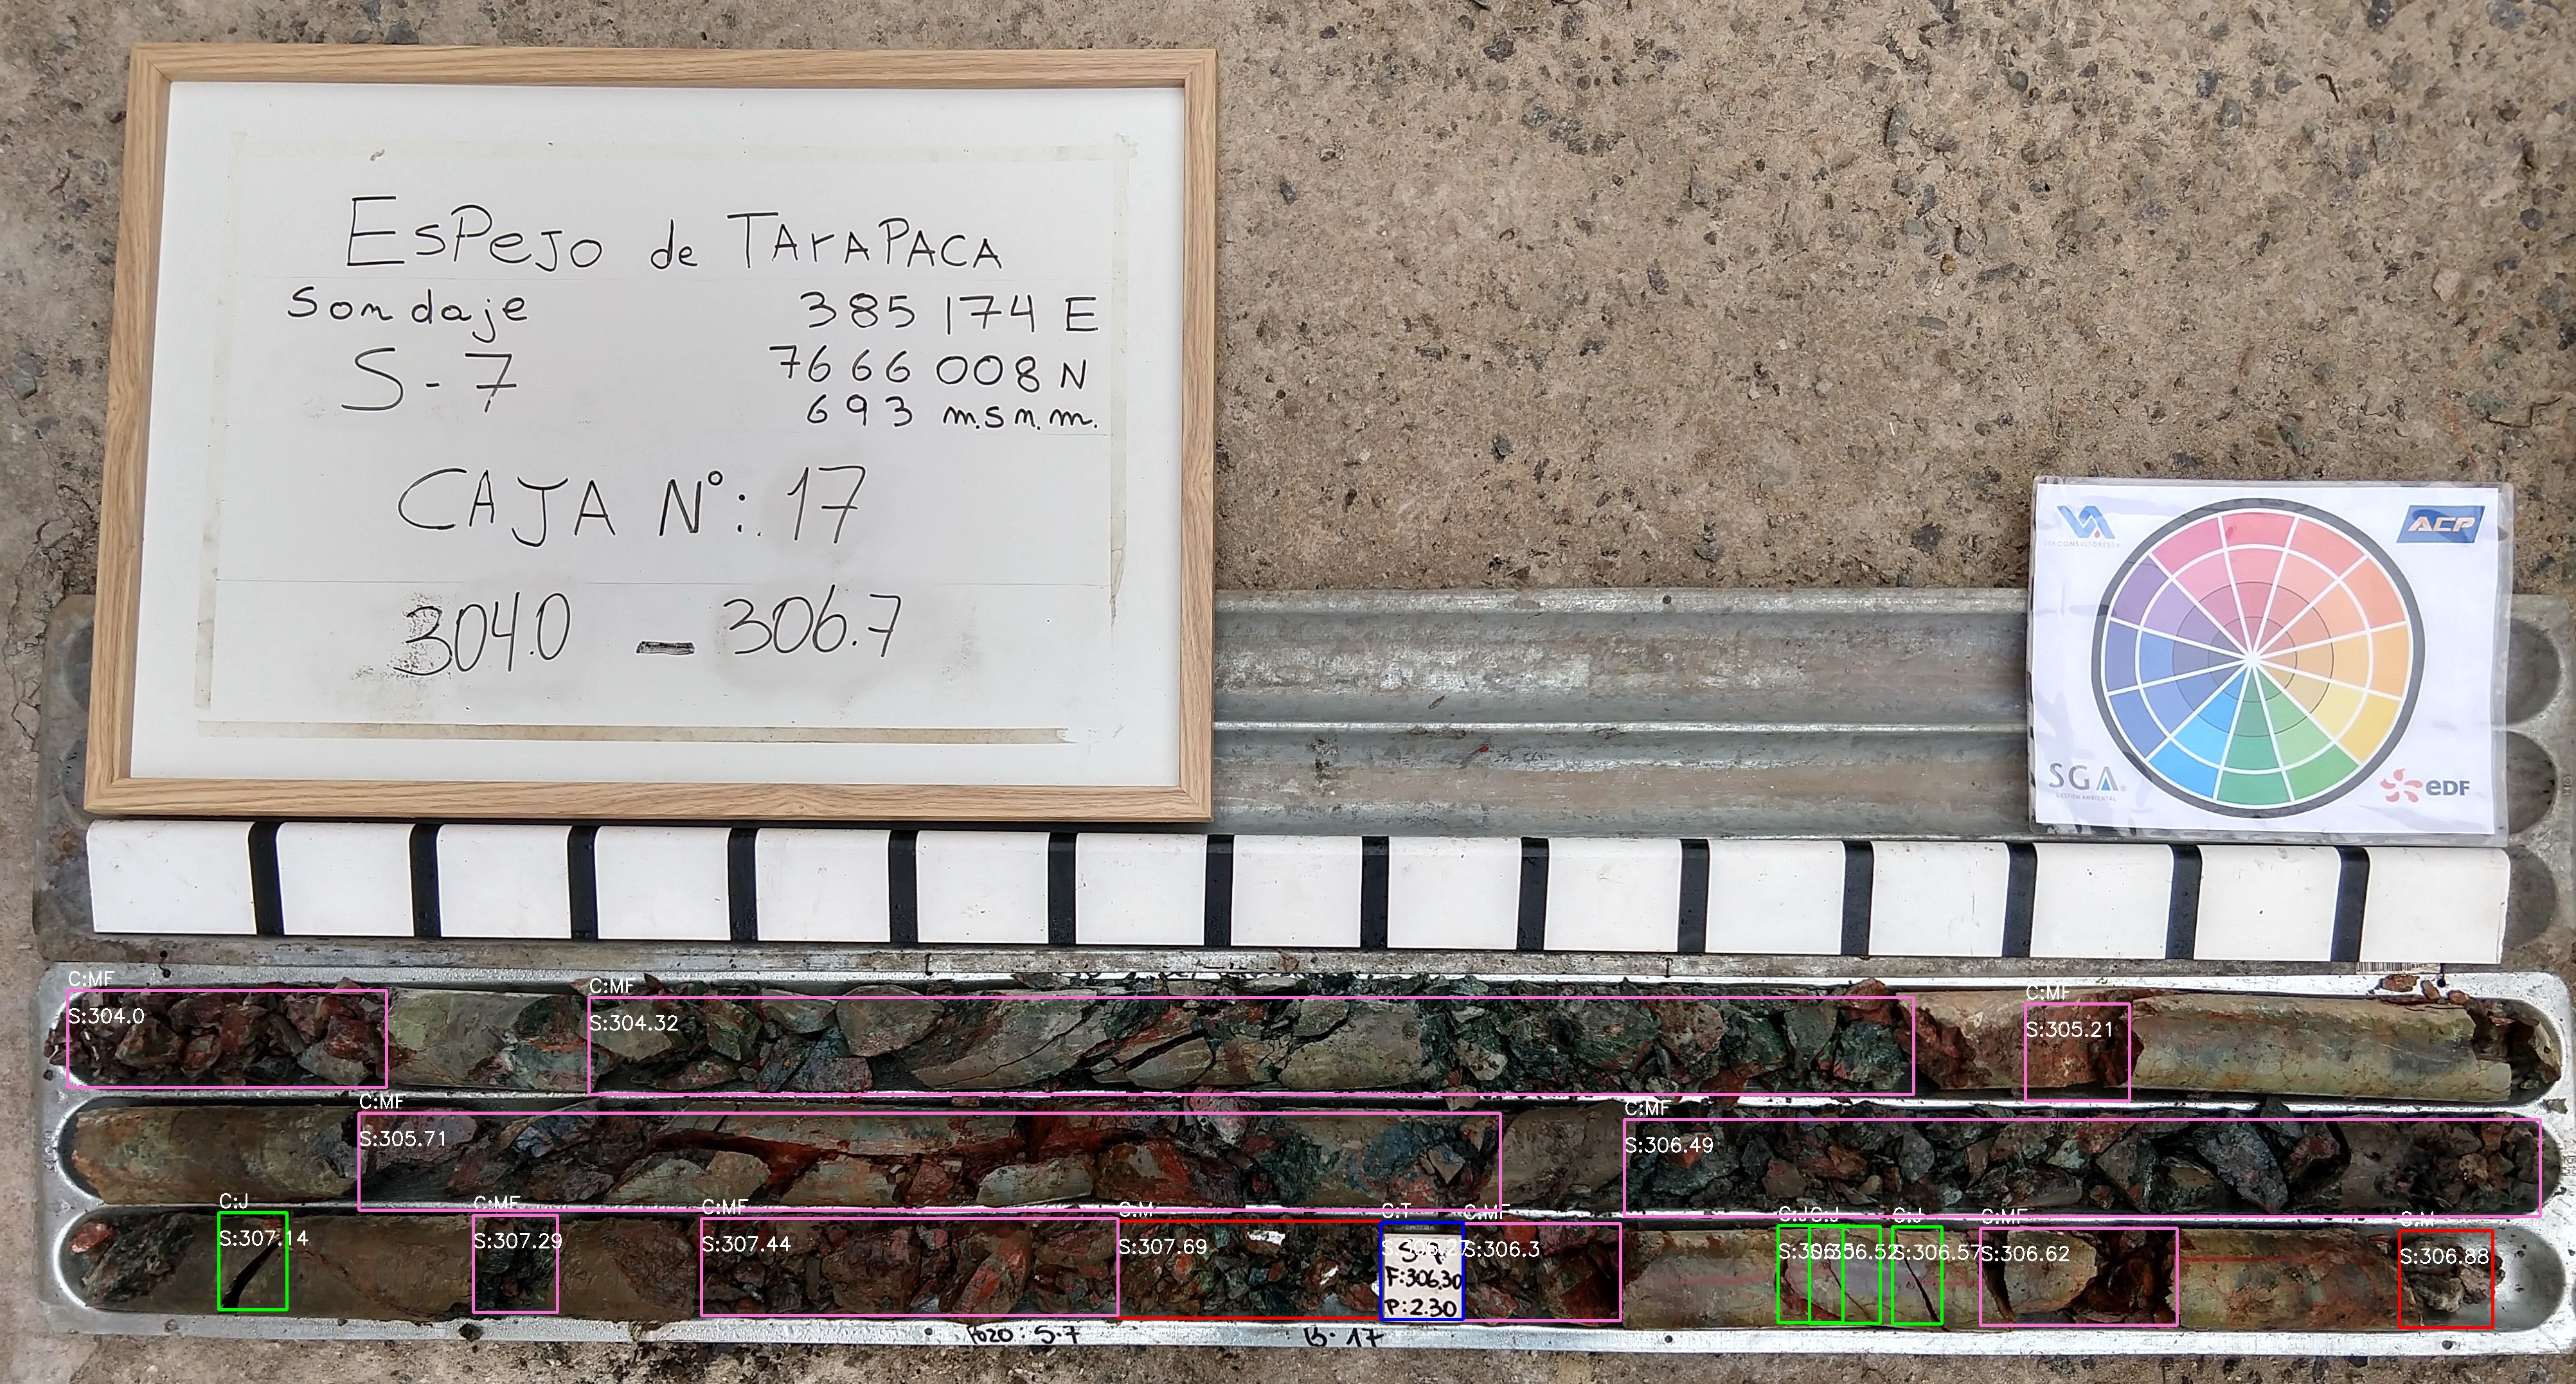 ESPEJO de TArAPACA
Sondaje
385 174 E
S-7
7666 008 N
693 m.s.n.m.
CAJA N°: 17
304.0 - 306.7
ACP
SGA
GESTIÓN AMBIENTAL
eDF
C:MF
S:304.0
C:MF
S:304.32
C:MF
S:305.21
C:MF
S:305.71
C:MF
S:306.49
C:J
S:307.14
C:MF
S:307.29
C:MF
S:307.44
C:M
S:307.69
C:T
S-7
F:306.30
P:2.30
C:MF
S:306.3
C:J
C:J
S:306.52
C:J
S:306.57
C:MF
S:306.62
C:M
S:306.88
Pozo: S-7
B-17